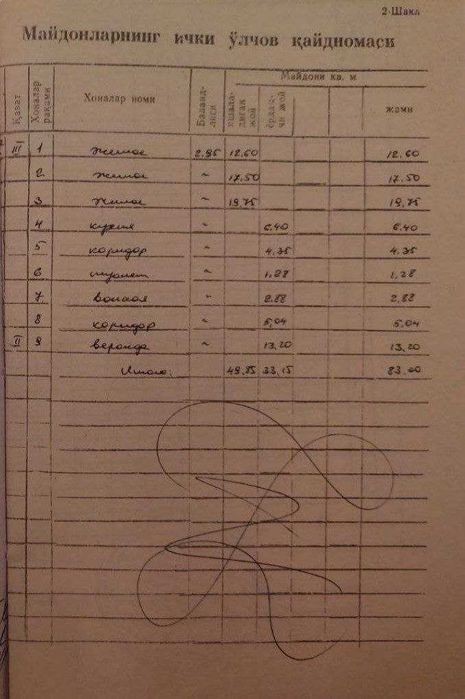 2-Шакл
Майдонларнинг ички ўлчов қайдномаси
Қават Хоналар рақами Хоналар номи Баланд-лиги яшала-диган жой ёрдам-чи жой Майдони кв. м жами
III 1 жилое 2.95 12.60 12.60
2. жилое " 17.50 17.50
3. жилое " 19.75 19.75
4 кухня " 6.40 6.40
5 коридор " 4.35 4.35
6. туалет " 1,28 1,28
7. ванная " 2.88 2.88
8 коридор " 5,04 5.04
II 9 веранда " 13,20 13,20
Итого: 49.85 33,15 83.00